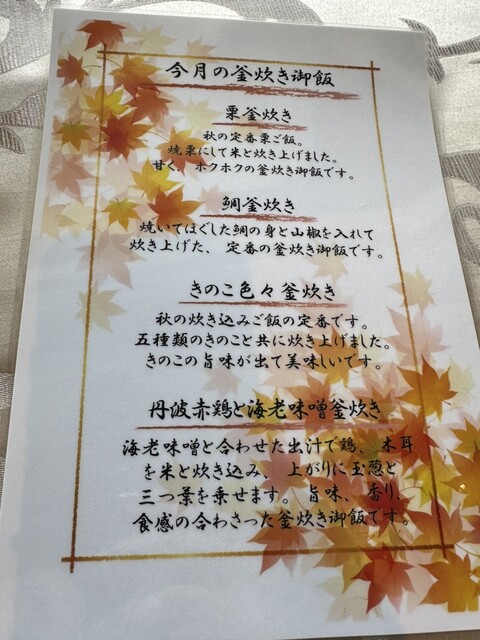 今月の釜炊き御飯
栗釜炊き
秋の定番栗ご飯。
焼栗にして米と炊き上げました。
甘く、ホクホクの釜炊き御飯です。
鯛釜炊き
焼いてほぐした鯛の身と山椒を入れて
炊き上げた、定番の釜炊き御飯です。
きのこ色々釜炊き
秋の炊き込みご飯の定番です。
五種類のきのこと共に炊き上げました。
きのこの旨味が出て美味しいです。
丹波赤鶏と海老味噌釜炊き
海老味噌と合わせた出汁で鶏、木耳
を米と炊き込み、上がりに玉葱と
三つ葉を乗せます。旨味、香り、
食感の合わさった釜炊き御飯です。